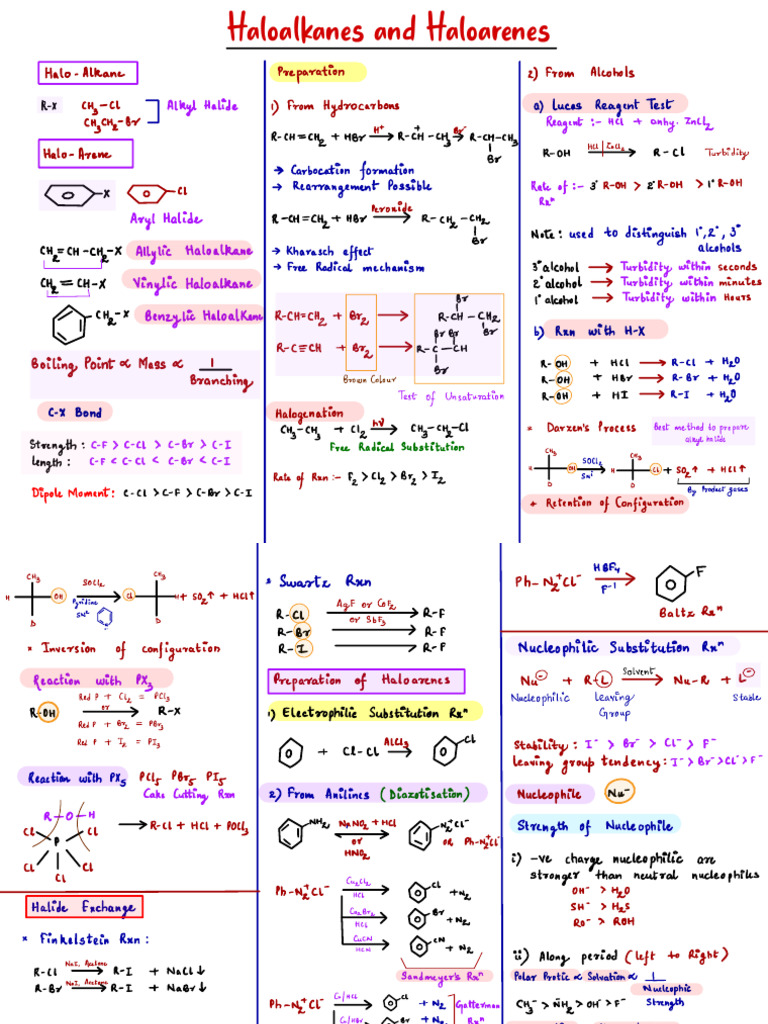 Haloalkanes and Haloarenes
Halo-Alkane
R-X CH3-Cl
CH3CH2-Br
Alkyl Halide
Halo-Arene
X Cl
Aryl Halide
CH2=CH-CH2-X Allylic Haloalkane
CH2=CH-X Vinylic Haloalkane
CH2-X Benzylic Haloalkane
Boiling Point ∝ Mass ∝ 1/Branching
C-X Bond
Strength: C-F > C-Cl > C-Br > C-I
length: C-F < C-Cl < C-Br < C-I
Dipole Moment: C-Cl > C-F > C-Br > C-I
Preparation
1) From Hydrocarbons
R-CH=CH2 + HBr →(H+) R-CH+-CH3 →(Br-) R-CH-CH3
Br
→ Carbocation formation
→ Rearrangement Possible
R-CH=CH2 + HBr →(Peroxide) R-CH2-CH2
Br
→ Kharasch effect
→ Free Radical mechanism
Br
R-CH=CH2 + Br2 → R-CH-CH2
Br
Br Br
R-C≡CH + Br2 → R-C-CH
Br
Brown Colour
Test of Unsaturation
Halogenation
CH3-CH3 + Cl2 →(hν) CH3-CH2-Cl
Free Radical Substitution
Rate of Rxn:- F2 > Cl2 > Br2 > I2
2) From Alcohols
a) Lucas Reagent Test
Reagent :- HCl + anhy. ZnCl2
R-OH →(HCl | ZnCl2) R-Cl Turbidity
Rate of :- 3° R-OH > 2° R-OH > 1° R-OH
Rxn
Note: used to distinguish 1°, 2°, 3°
alcohols
3° alcohol → Turbidity within seconds
2° alcohol → Turbidity within minutes
1° alcohol → Turbidity within Hours
b) Rxn with H-X
R-OH + HCl → R-Cl + H2O
R-OH + HBr → R-Br + H2O
R-OH + HI → R-I + H2O
* Darzen's Process
Best method to prepare
alkyl halide
CH3 CH3
H OH →(SOCl2 SNi) H Cl + SO2↑ + HCl↑
D D
By Product gases
* Retention of Configuration
CH3 CH3
H OH →(SOCl2 Pyridine SN2) Cl H + SO2↑ + HCl↑
D D
* Inversion of configuration
Reaction with PX3
Red P + Cl2 = PCl3
R-OH → or R-X
Red P + Br2 = PBr3
Red P + I2 = PI3
Reaction with PX5 PCl5 PBr5 PI5
Cake Cutting Rxn
R-O-H
Cl P Cl → R-Cl + HCl + POCl3
Cl Cl
Cl
Halide Exchange
* Finkelstein Rxn:
R-Cl →(NaI, Acetone) R-I + NaCl↓
R-Br →(NaI, Acetone) R-I + NaBr↓
* Swartz Rxn
R-Cl →(AgF or CoF2 or SbF3) R-F
R-Br → R-F
R-I → R-F
Preparation of Haloarenes
1) Electrophilic Substitution Rxn
+ Cl-Cl →(AlCl3) Cl
2) From Anilines (Diazotisation)
NH2 NaNO2 + HCl or HNO2 N2+Cl- OR Ph-N2+Cl-
Ph-N2+Cl-
Cu2Cl2 HCl Cl + N2
Cu2Br2 HCl Br + N2
CuCN HCN CN + N2
Sandmeyer's Rxn
Ph-N2+Cl-
Cu/HCl Cl + N2
Cu/HBr Br + N2
Gatterman
Rxn
Ph-N2+Cl- →(HBF4 F-1) F
Baltz Rxn
Nucleophilic Substitution Rxn
Nu- + R-L →(Solvent) Nu-R + L-
Nucleophilic Leaving Group Stable
Stability: I- > Br- > Cl- > F-
leaving group tendency: I- > Br- > Cl- > F-
Nucleophile Nu-
Strength of Nucleophile
i) -ve charge nucleophilic are
stronger than neutral nucleophiles
OH- > H2O
SH- > H2S
RO- > ROH
ii) Along period (left to Right)
Polar Protic ∝ Solvation ∝ 1/Nucleophic Strength
CH3- > NH2- > OH- > F-